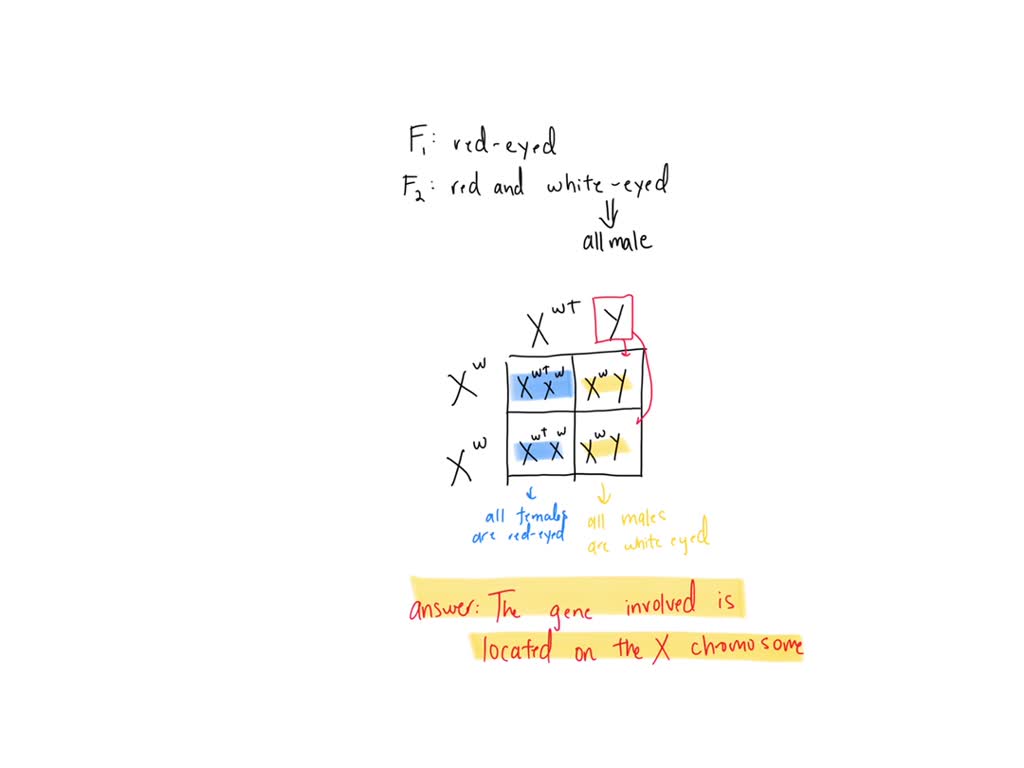 F₁: red-eyed
F₂: red and white-eyed
⇓
all male
X^w+ Y
X^w X^w+ X^w X^w Y
X^w X^w+ X^w X^w Y
↓ ↓
all females
are red-eyed
all males
are white eyed
answer: The gene involved is
located on the X chromosome